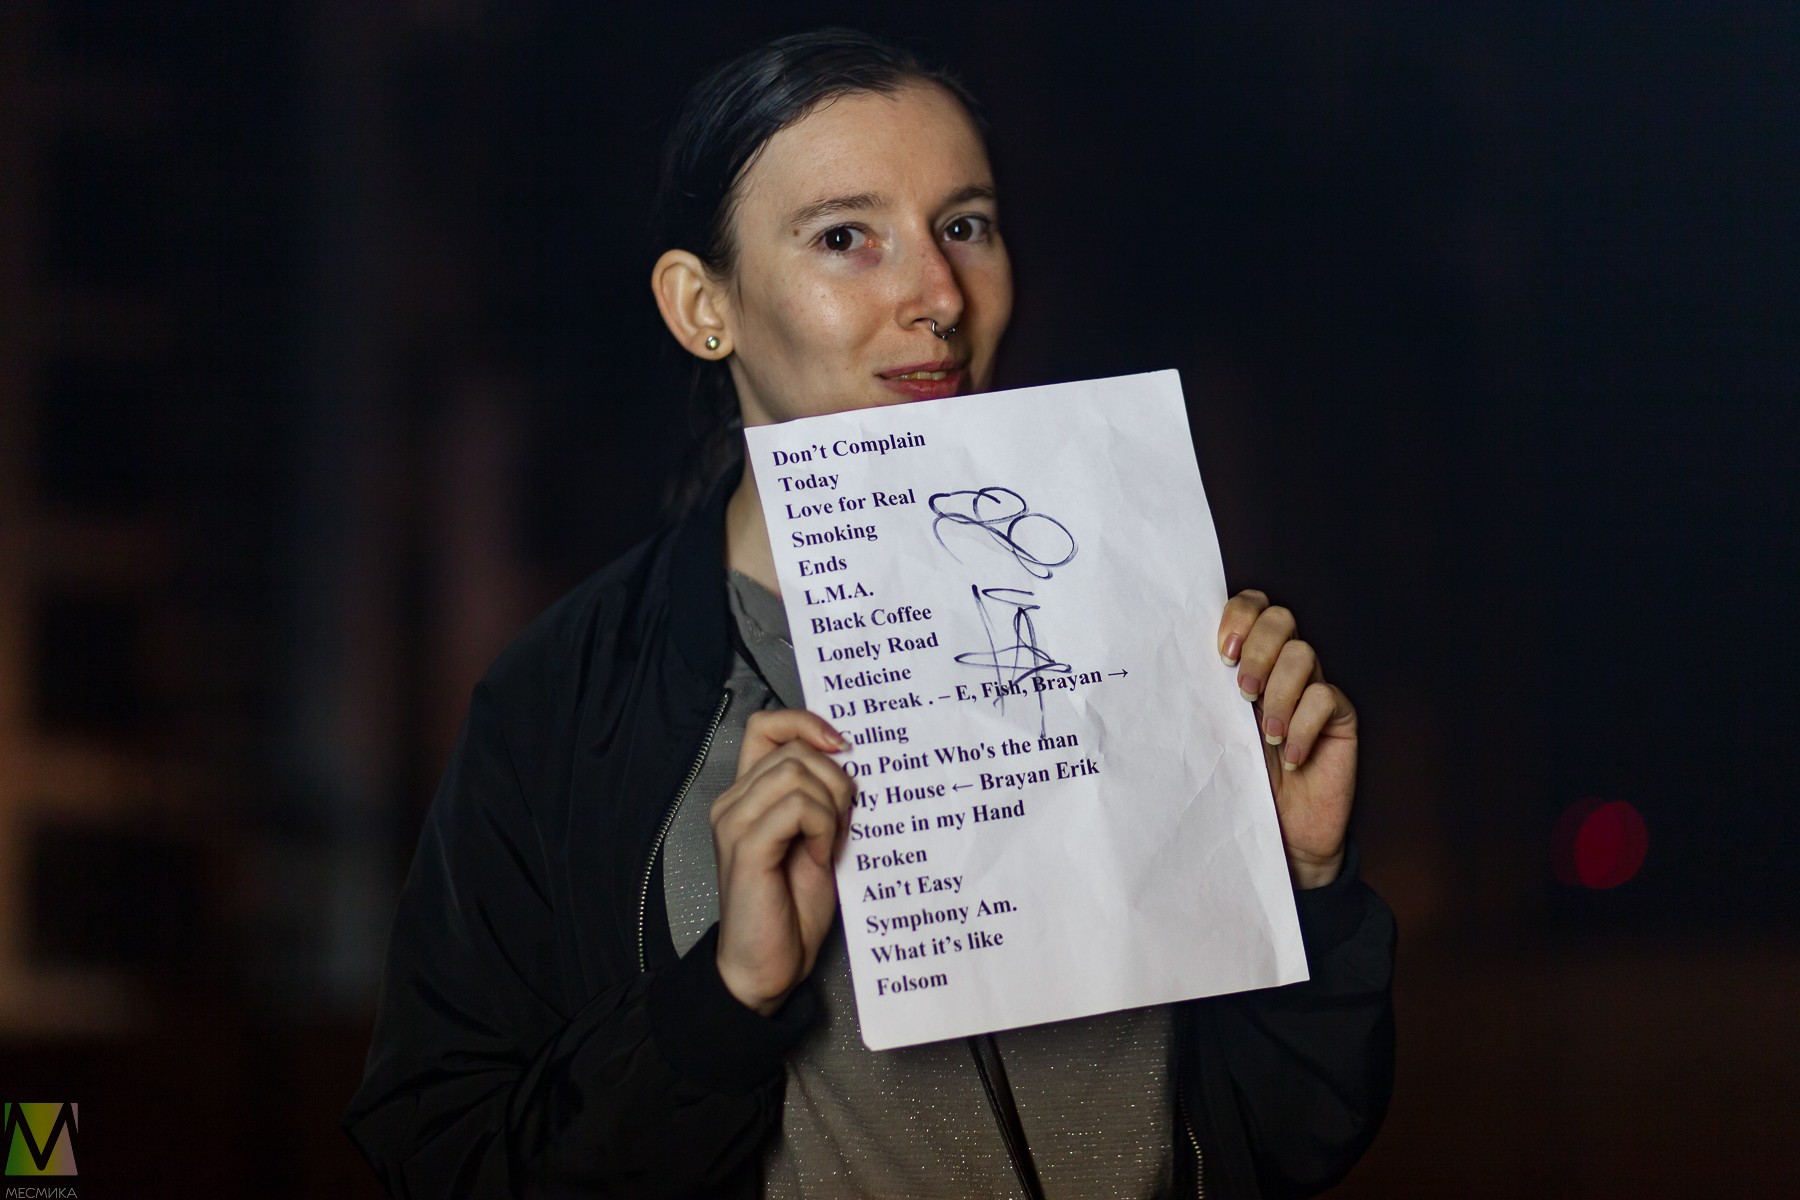 Don't Complain
Today
Love for Real
Smoking
Ends
L.M.A.
Black Coffee
Lonely Road
Medicine
DJ Break . – E, Fish, Brayan →
Culling
On Point Who's the man
My House ← Brayan Erik
Stone in my Hand
Broken
Ain't Easy
Symphony Am.
What it's like
Folsom
МЕСМИКА